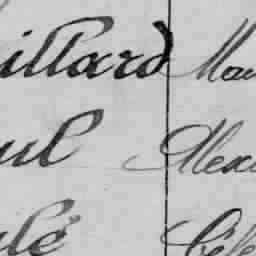 illard Mau
ul Alex
lé Céle